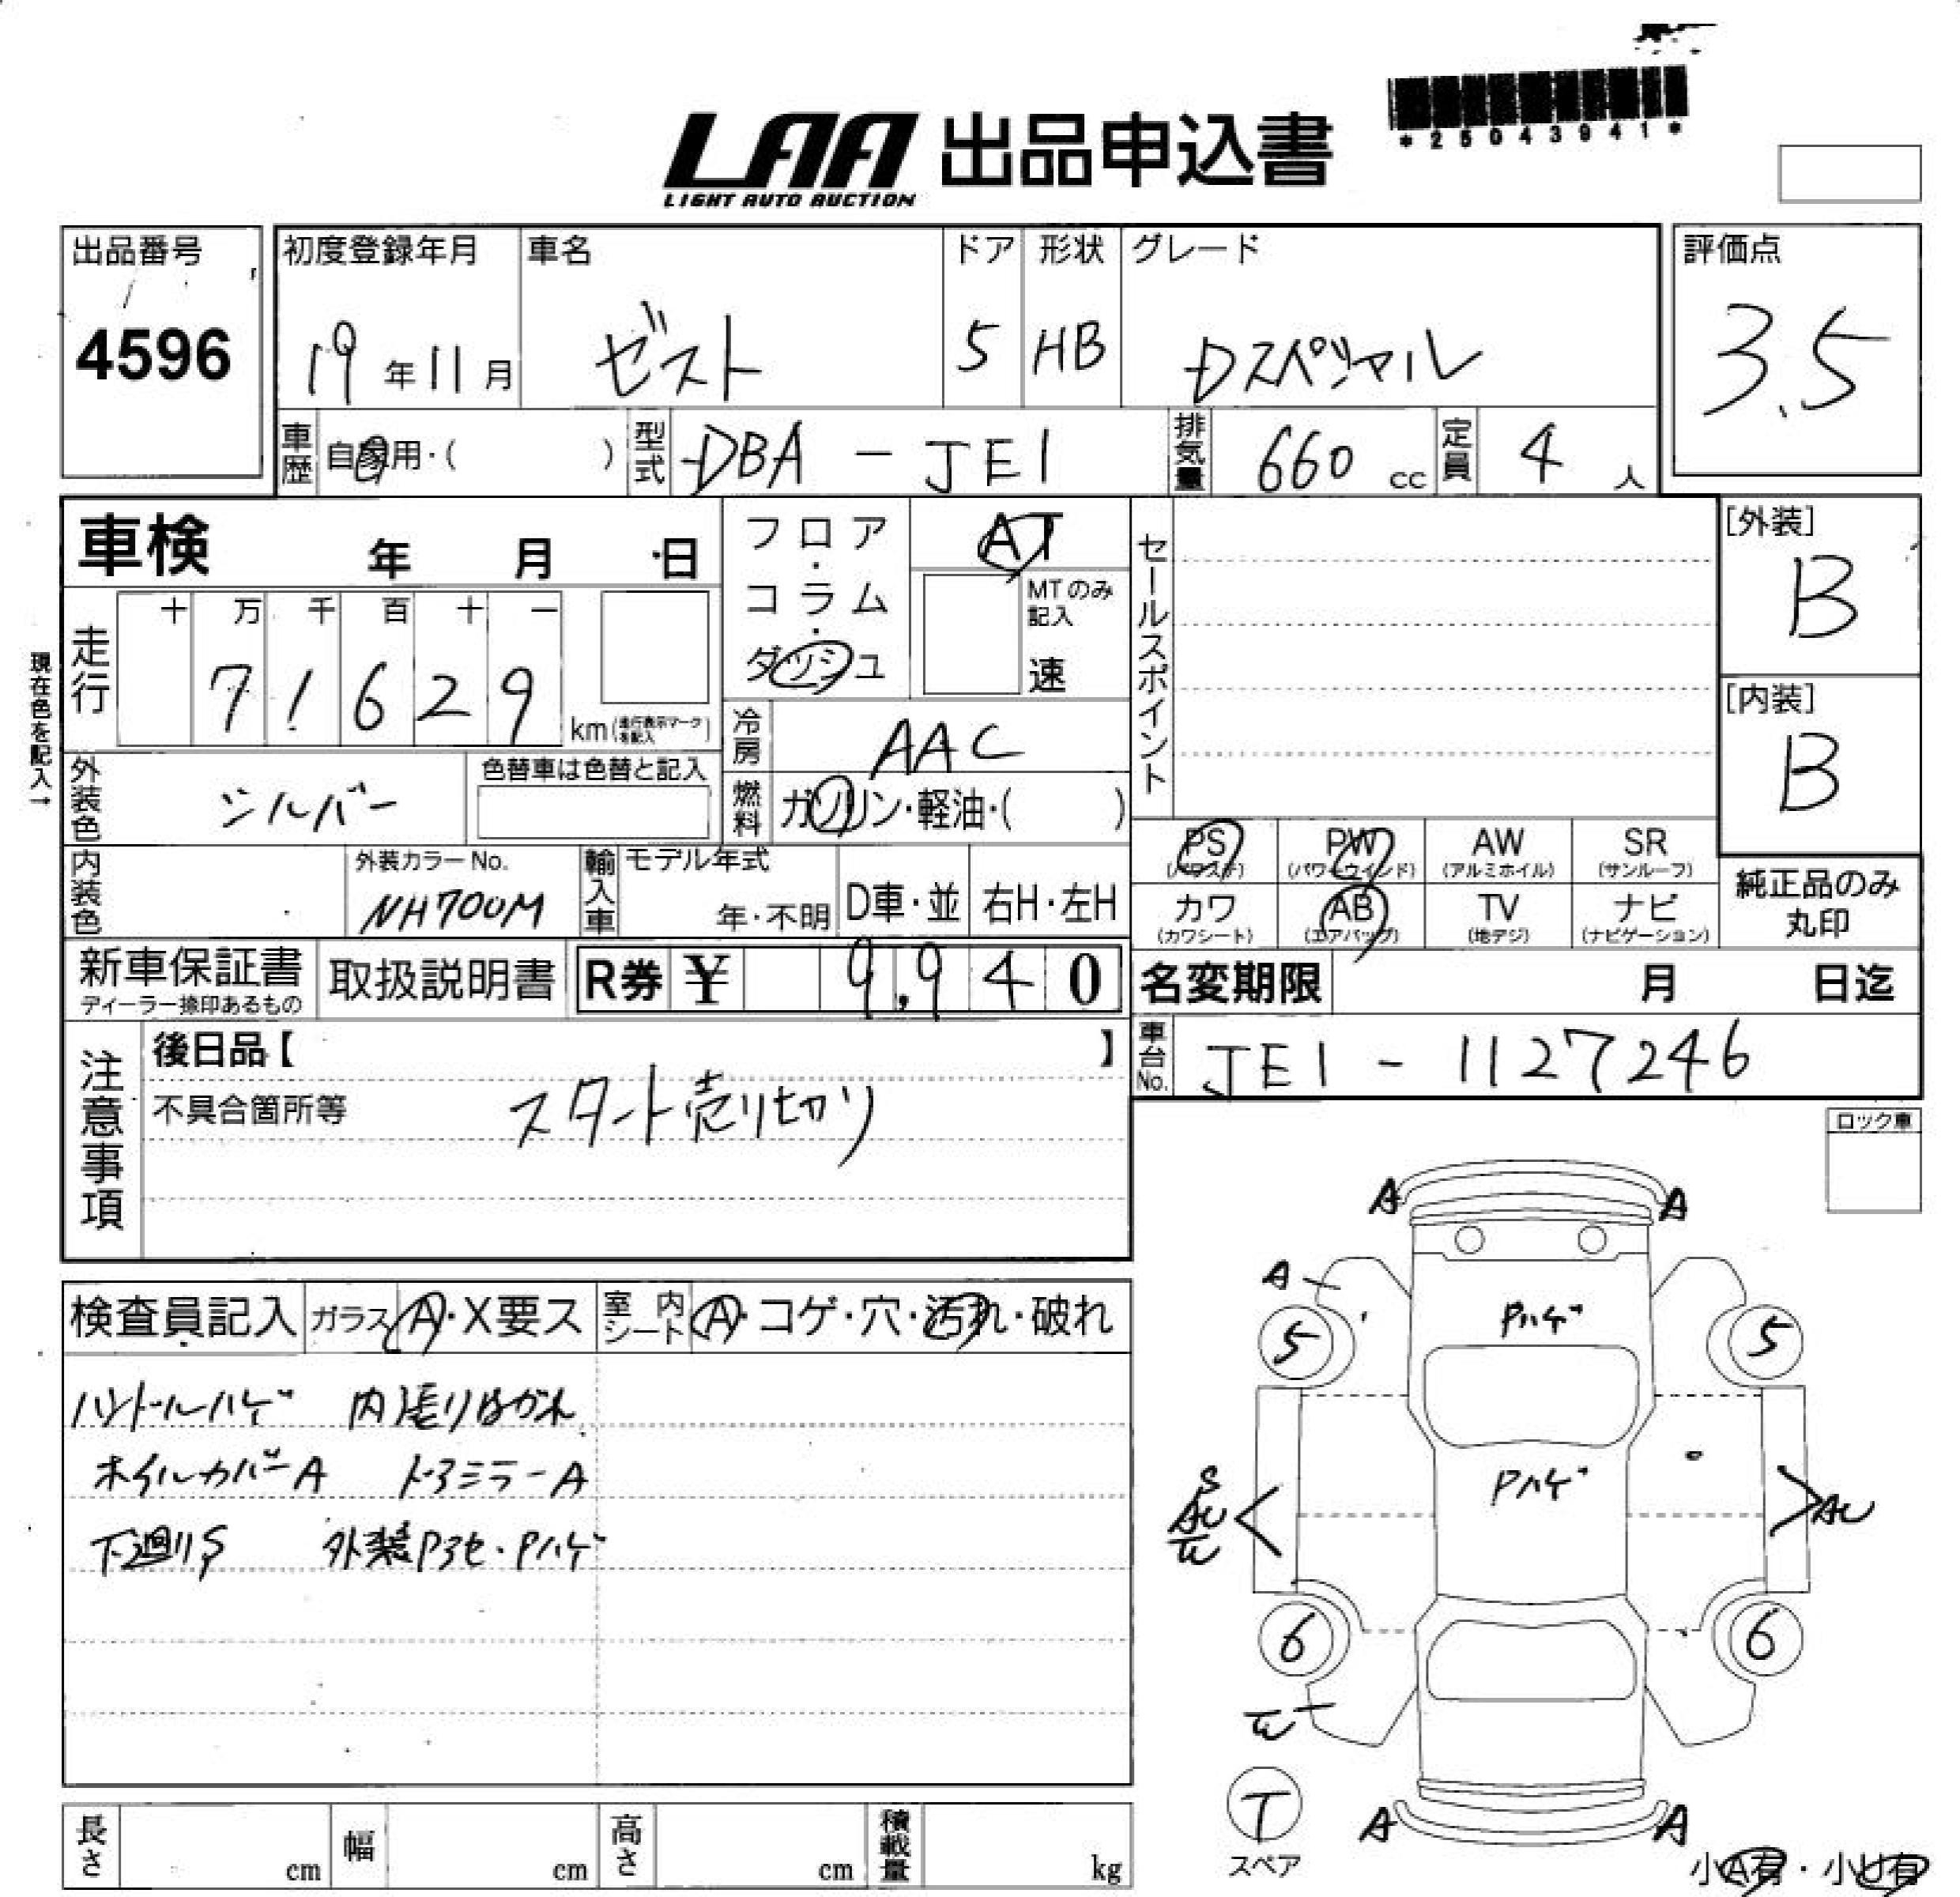 *25043941*
LAA 出品申込書
LIGHT AUTO AUCTION
出品番号
4596
初度登録年月 車名 ドア 形状 グレード
19年11月 ゼスト 5 HB Dスペシャル
評価点
3.5
車歴 自家用・( ) 型式 DBA-JE1 排気量 660 cc 定員 4 人
車検 年 月 日
フロア・コラム・ダッシュ
AT
MTのみ記入
速
セールスポイント
[外装]
B
[内装]
B
現在色を記入→
走行
十 万 千 百 十 一
7 1 6 2 9 km (走行表示マークを記入)
冷房 AAC
燃料 ガソリン・軽油・( )
外装色 シルバー
色替車は色替と記入
内装色
外装カラーNo.
NH700M
輸入車 モデル年式
年・不明 D車・並 右H・左H
PS (パワステ) PW (パワーウインド) AW (アルミホイル) SR (サンルーフ)
カワ (カワシート) AB (エアバッグ) TV (地デジ) ナビ (ナビゲーション)
純正品のみ
丸印
新車保証書
ディーラー捺印あるもの
取扱説明書
R券 ¥ 9,940
名変期限 月 日迄
車台No. JE1-1127246
注意事項
後日品【 】
不具合箇所等
スタート売り切り
ロック車
検査員記入 ガラス A・X要ス 室内シート A・コゲ・穴・汚れ・破れ
ハンドルハゲ 内張りはがれ
ホイルカバーA ドアミラーA
下廻りS 外装Pアセ・Pハゲ
A A
A
Pハゲ
5 5
Pハゲ
S
AU
AU
6 6
T
スペア
A A
小A有・小U有
長さ cm 幅 cm 高さ cm 積載量 kg